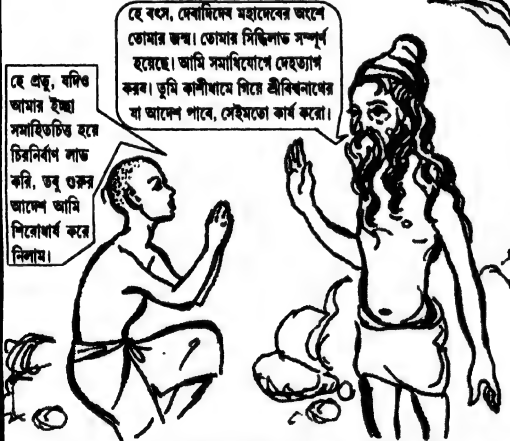 হে বৎস, দেবাদিদেব মহাদেবের অংশে
তোমার জন্ম। তোমার সিদ্ধিলাভ সম্পূর্ণ
হয়েছে। আমি সমাধিযোগে দেহত্যাগ
করব। তুমি কাশীধামে গিয়ে শ্রীবিশ্বনাথের
যা আদেশ পাবে, সেইমতো কার্য করো।
হে প্রভু, যদিও
আমার ইচ্ছা
সমাহিতচিত্ত হয়ে
চিরনির্বাণ লাভ
করি, তবু গুরুর
আদেশ আমি
শিরোধার্য করে
নিলাম।